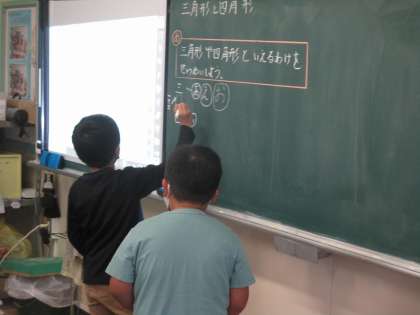 三角形と四角形
三角形や四角形といえるわけを
せつめいしよう。
三…あ え お